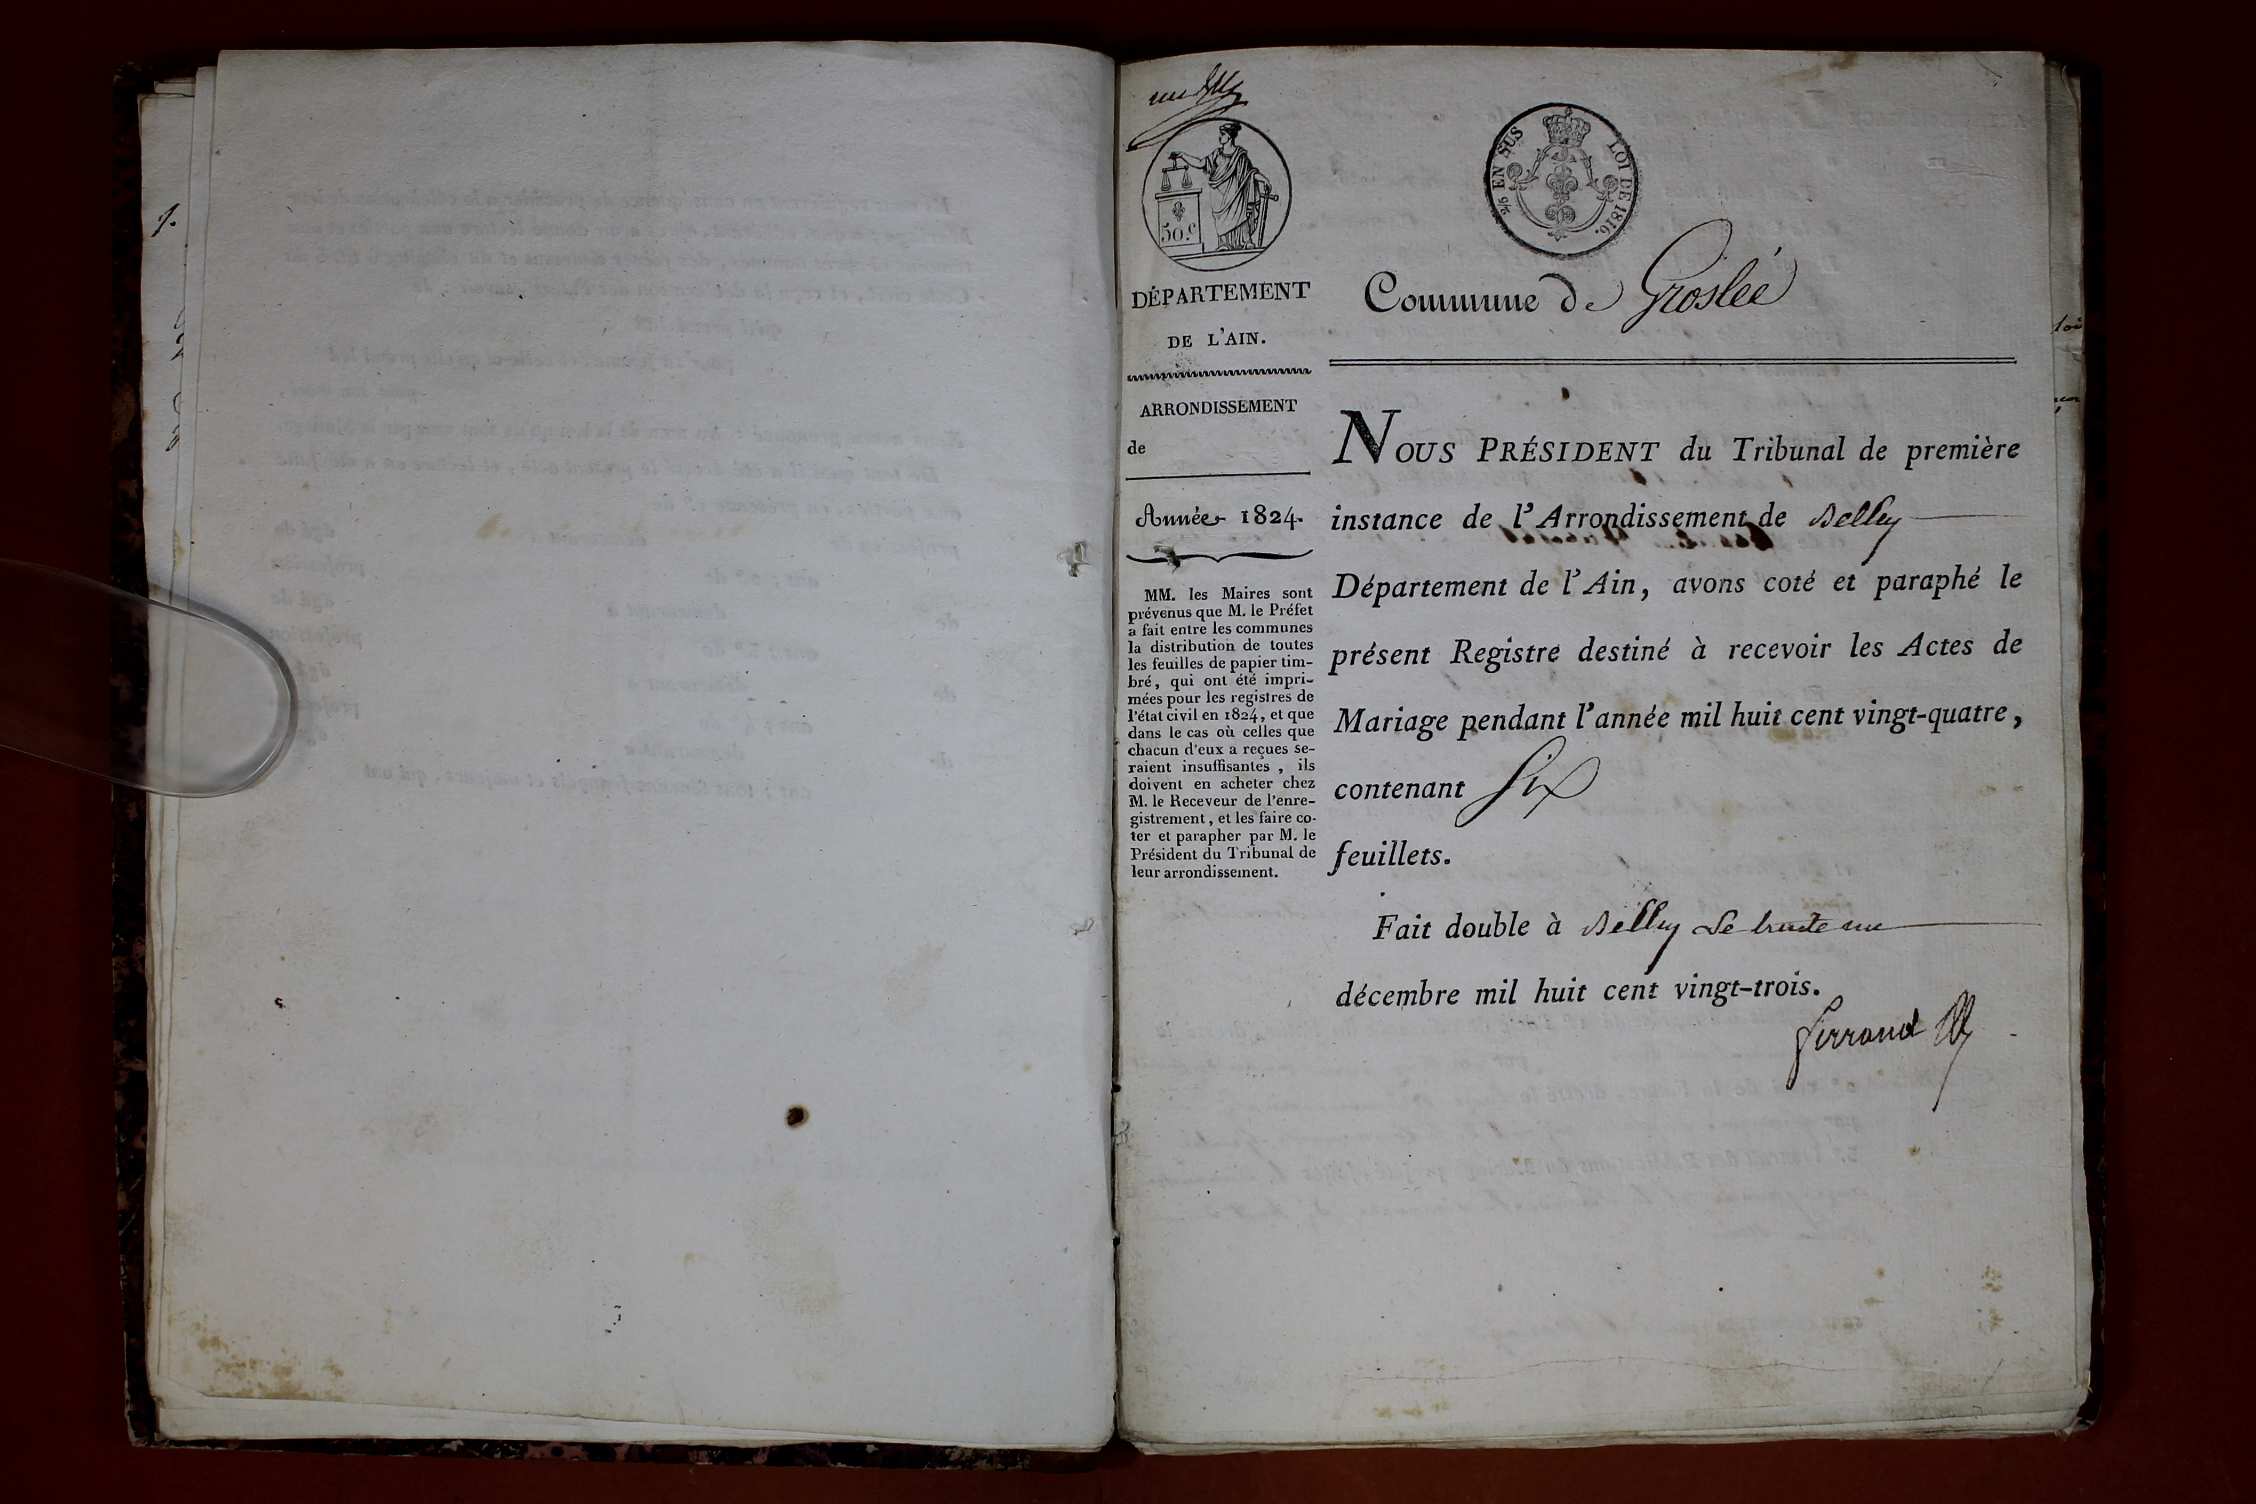 50.c
2/5 EN SUS
LOI DE 1816.
DÉPARTEMENT
DE L'AIN.
ARRONDISSEMENT
de
Année 1824.
MM. les Maires sont
prévenus que M. le Préfet
a fait entre les communes
la distribution de toutes
les feuilles de papier tim-
bré, qui ont été impri-
mées pour les registres de
l'état civil en 1824, et que
dans le cas où celles que
chacun d'eux a reçues se-
raient insuffisantes, ils
doivent en acheter chez
M. le Receveur de l'enre-
gistrement, et les faire co-
ter et parapher par M. le
Président du Tribunal de
leur arrondissement.
Commune de Groslée
NOUS PRÉSIDENT du Tribunal de première
instance de l'Arrondissement de Belley
Département de l'Ain, avons coté et paraphé le
présent Registre destiné à recevoir les Actes de
Mariage pendant l'année mil huit cent vingt-quatre,
contenant Six
feuillets.
Fait double à Belley le trente un
décembre mil huit cent vingt-trois.
Ferrand